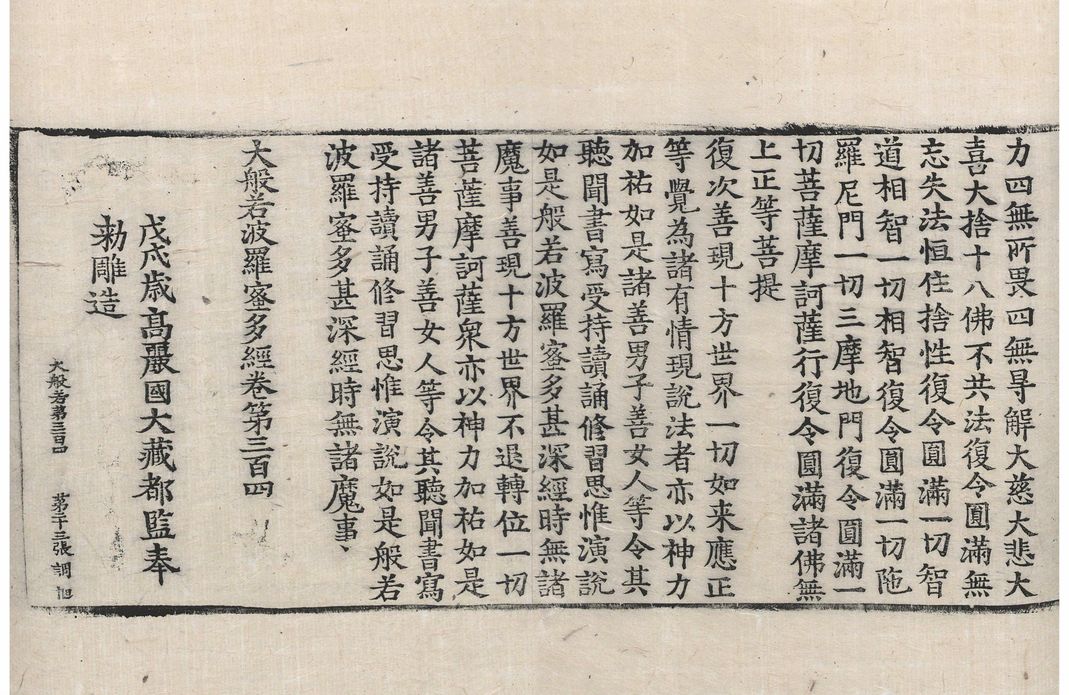 力四無所畏四無㝵解大慈大悲大
喜大捨十八佛不共法復令圓滿無
忘失法恒住捨性復令圓滿一切智
道相智一切相智復令圓滿一切陁
羅尼門一切三摩地門復令圓滿一
切菩薩摩訶薩行復令圓滿諸佛無
上正等菩提
復次善現十方世界一切如来應正
等覺為諸有情現說法者亦以神力
加祐如是諸善男子善女人等令其
聽聞書寫受持讀誦修習思惟演說
如是般若波羅蜜多甚深經時無諸
魔事善現十方世界不退轉位一切
菩薩摩訶薩衆亦以神力加祐如是
諸善男子善女人等令其聽聞書寫
受持讀誦修習思惟演說如是般若
波羅蜜多甚深經時無諸魔事、
大般若波羅蜜多經卷第三百四
戊戌歲高麗國大藏都監奉
勑雕造
大般若第三百四 第二十三張 調